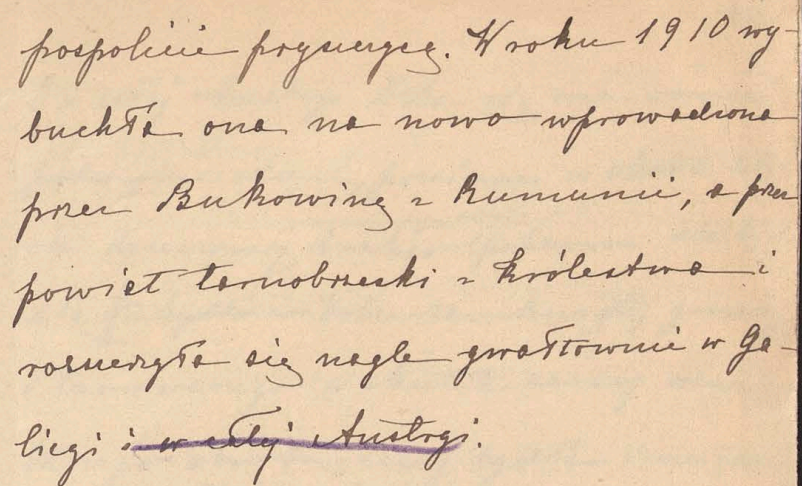 pospolicie pryszczycą. W roku 1910 wy-
buchła ona na nowo wprowadzona
przez Bukowinę z Rumunii, a przez
powiat tarnobrzeski z Królestwa i
rozszerzyła się nagle gwałtownie w Ga-
licyi i w całej Austryi.